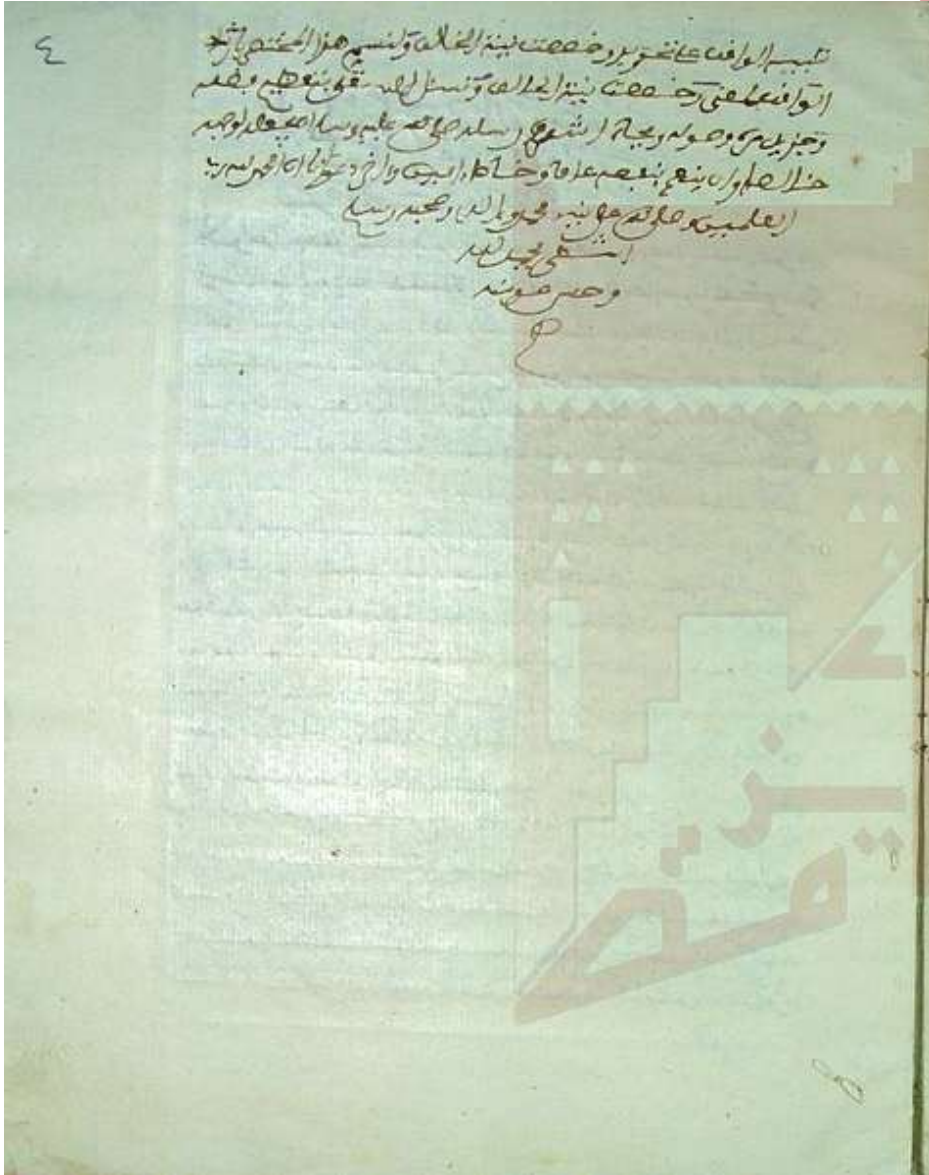 ٤
تنبيه الواقف على تحرير وخصصت نية الحالف ولنسم هذا المختصر بإرشاد
الواقف لمعنى وخصصت نية الحالف ونسئل الله تعلى بتعظيم فضله
وجزيل من وصوله وبجاه أشرف رسله صلى الله عليه وسلم أن يجعله لوجهه
خالصا وأن ينفع بنفعه عاما وخاصا ءامين وءاخر دعوانا ان الحمد لله رب
العلمين وصلى الله على نبيه محمد وءاله وصحبه وسلم
انتهى بحمد الله
وحسن عونه